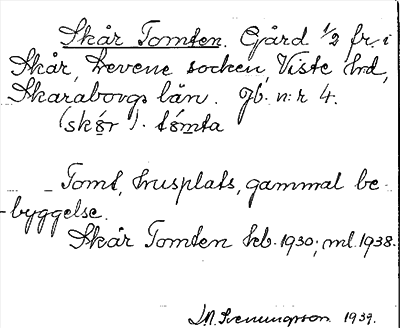 Skår Tomten. Gård 1/2 fr. i
Skår, Levene socken, Viste hrd,
Skaraborgs län. Jb. n:r 4.
(skǿr). tómta
Tomt, husplats, gammal be-
byggelse.
Skår Tomten kb. 1930; ml. 1938.
Svenungsson 1939.